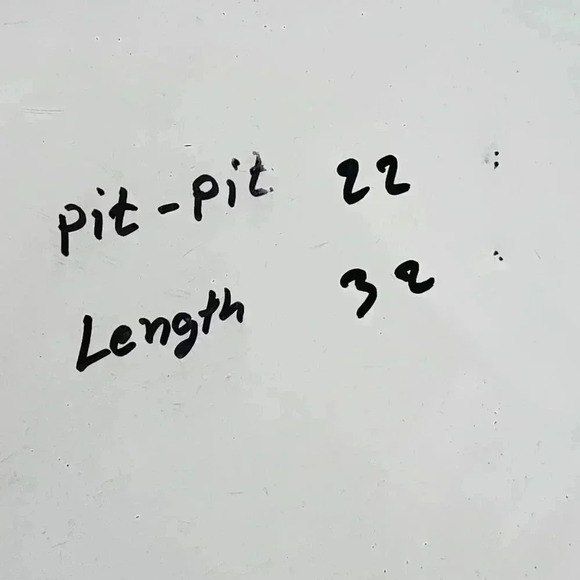 pit-pit 22 :
Length 32 :